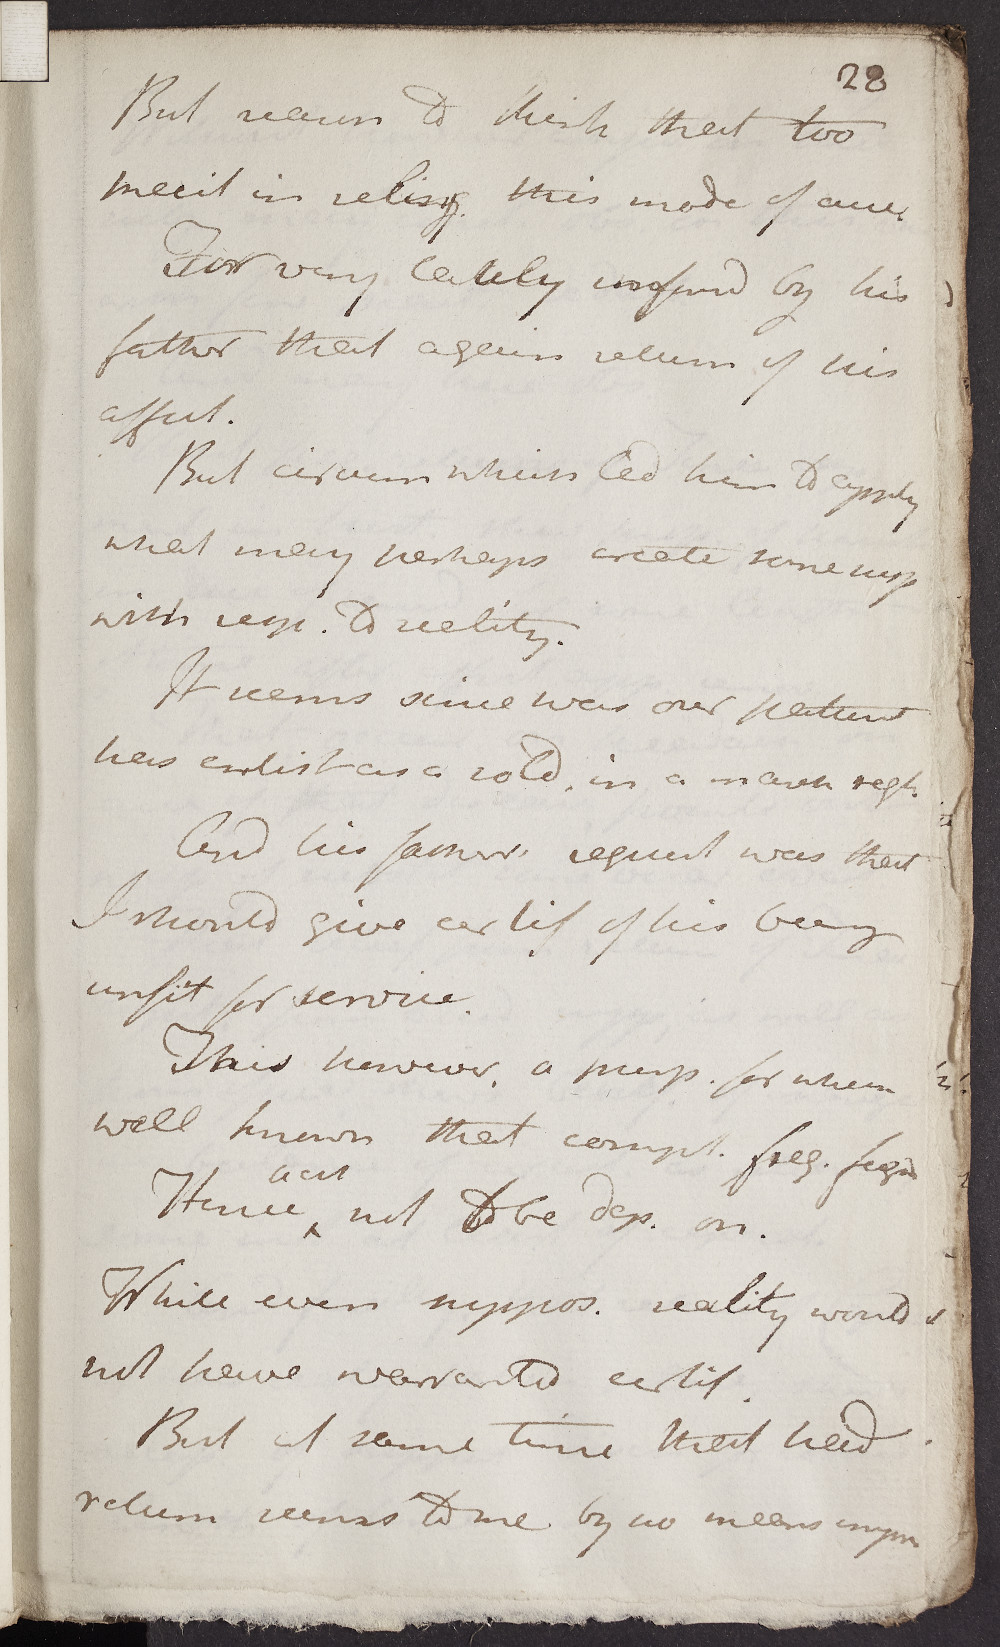 28
But reason to think that too
much in relisg. this mode of cure
For very lately informd by his
father that again return of his
affect.
But circum which led him to apply
what may perhaps create some susp
with resp. to reality.
It seems since was our patient
has enlist as a sold. in a march regt.
And his fathers request was that
I should give certif of his being
unfit for service.
This however, a purp. for when
well known that compl. freq. feignd
Hence acct not to be dep. on.
While even suppos. reality would
not have warranted certif.
But at same time that head
return seems to me by no means impr